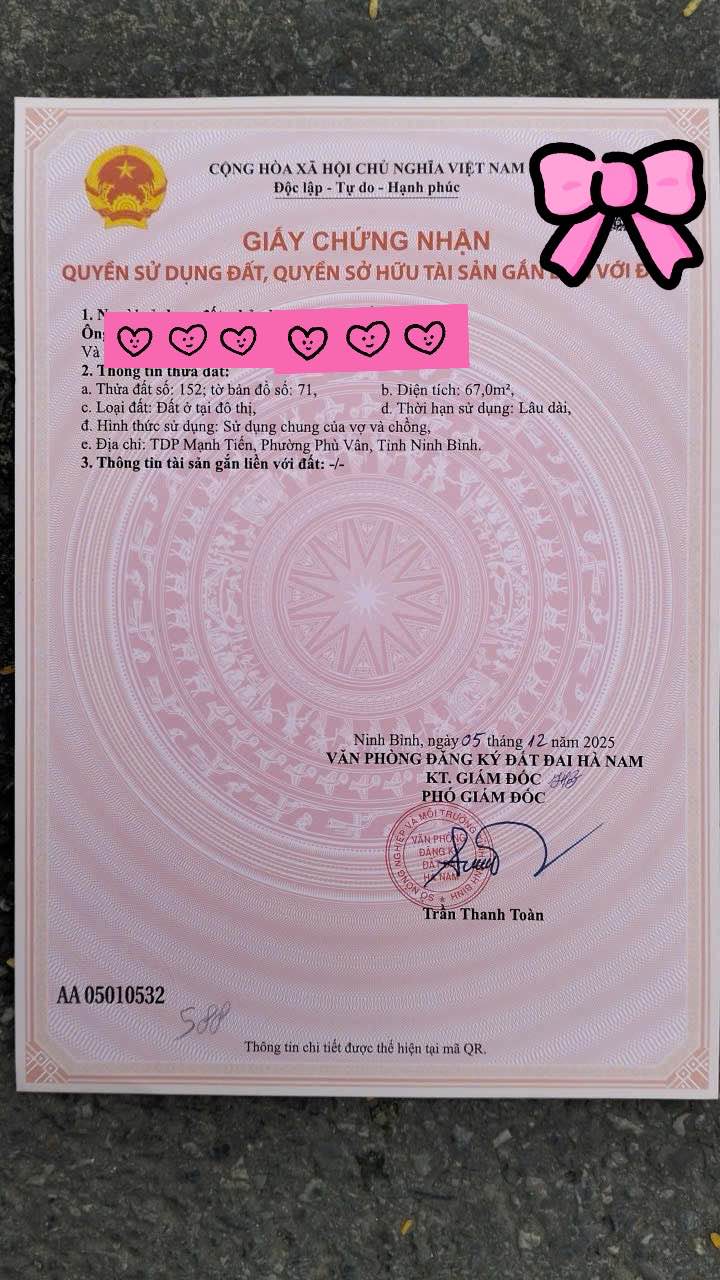 CỘNG HÒA XÃ HỘI CHỦ NGHĨA VIỆT NAM
Độc lập - Tự do - Hạnh phúc
GIẤY CHỨNG NHẬN
QUYỀN SỬ DỤNG ĐẤT, QUYỀN SỞ HỮU TÀI SẢN GẮN VỚI
1.
Ông
Và
2. Thông tin thửa đất:
a. Thửa đất số: 152; tờ bản đồ số: 71, b. Diện tích: 67,0m²,
c. Loại đất: Đất ở tại đô thị, d. Thời hạn sử dụng: Lâu dài,
đ. Hình thức sử dụng: Sử dụng chung của vợ và chồng,
e. Địa chỉ: TDP Mạnh Tiến, Phường Phù Vân, Tỉnh Ninh Bình.
3. Thông tin tài sản gắn liền với đất: -/-
Ninh Bình, ngày 05 tháng 12 năm 2025
VĂN PHÒNG ĐĂNG KÝ ĐẤT ĐAI HÀ NAM
KT. GIÁM ĐỐC
PHÓ GIÁM ĐỐC
SỞ NÔNG NGHIỆP VÀ MÔI TRƯỜNG NINH BÌNH
VĂN PHÒNG
ĐĂNG K
ĐẤ
HÀ NAM
Trần Thanh Toàn
AA 05010532
588
Thông tin chi tiết được thể hiện tại mã QR.